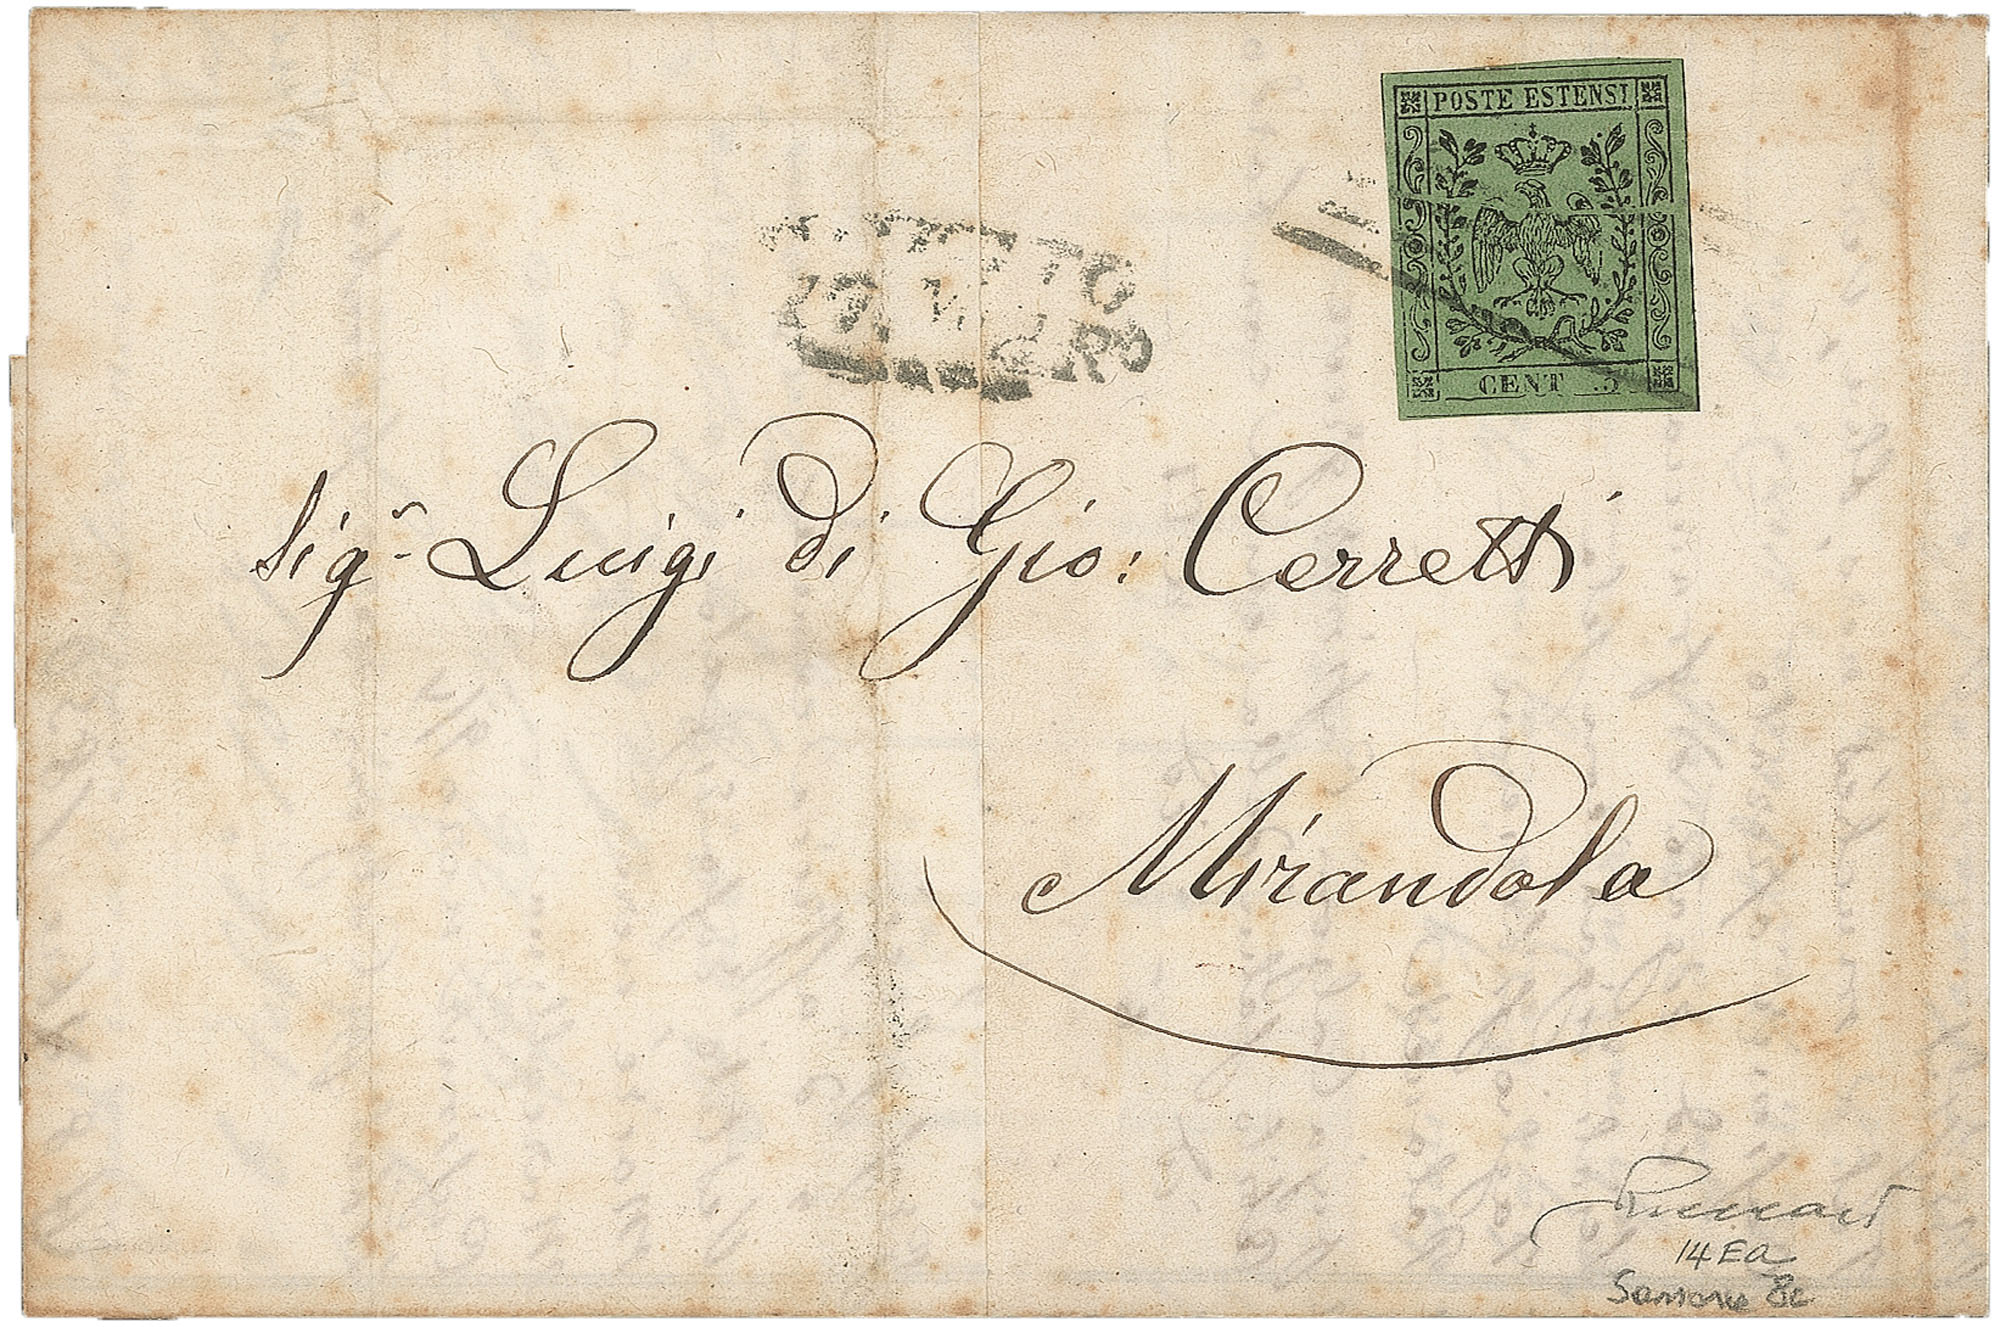 POSTE ESTENSI
CENT .5
Sigr. Luigi di Gio: Cerretti
Mirandola
14 Ea
Sassone 8c